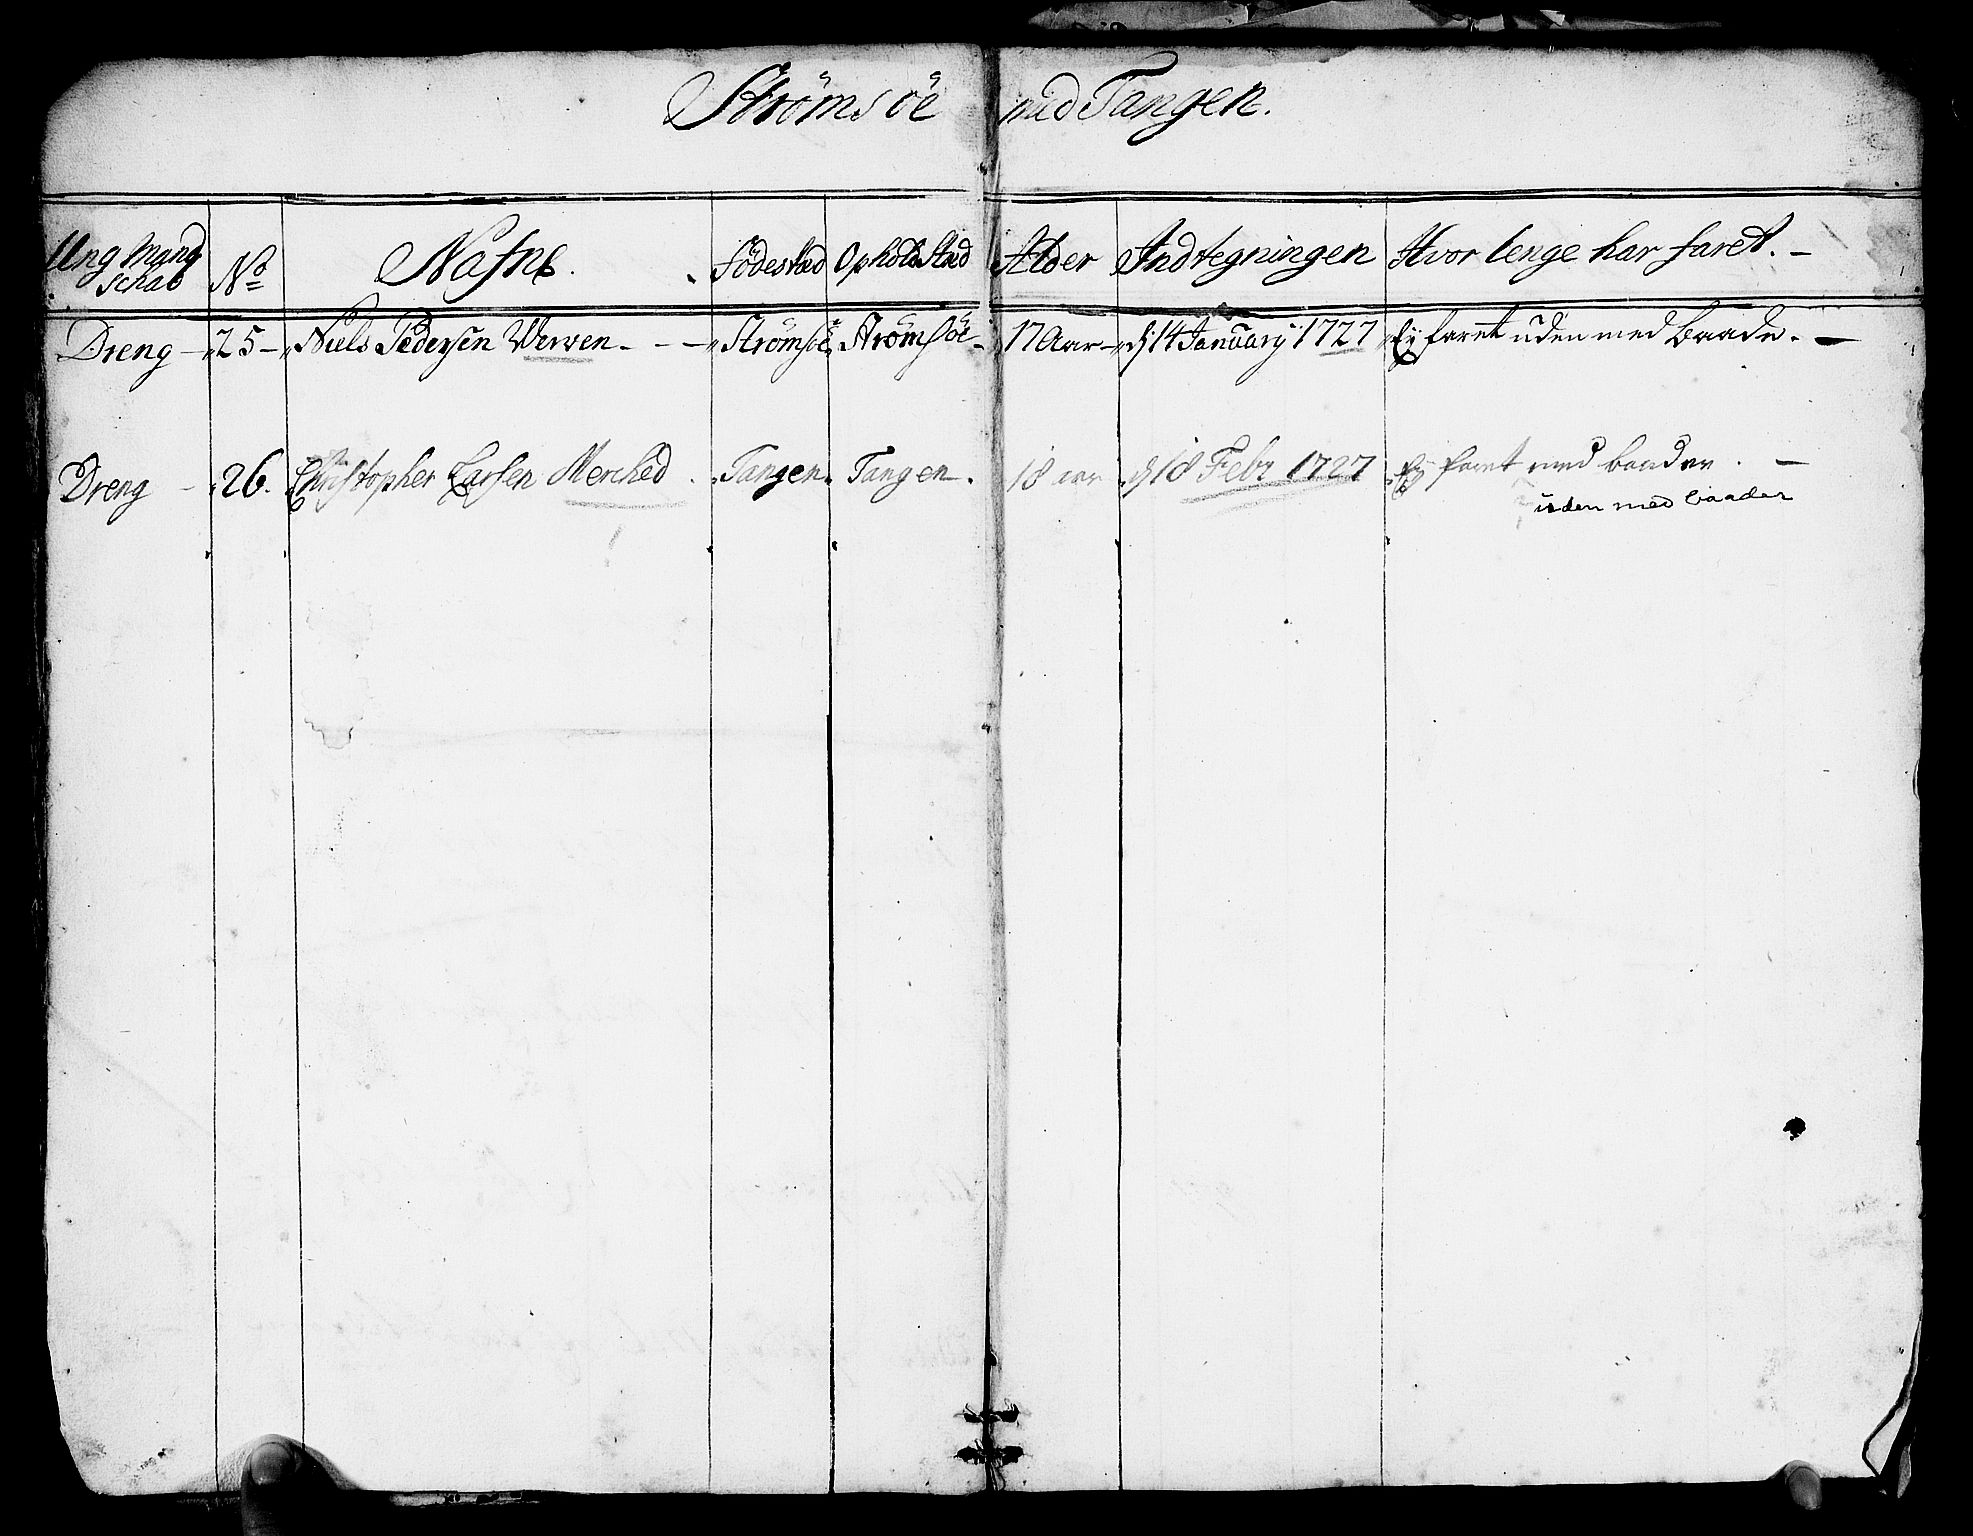 Strömsöe med Tangen.
Ung Mand Schab No Nafne. Födestæd Opholds Stæd Alder Indtegningen Hvor lenge har faret. –
Dreng – 25 – Niels Pedersen Werven. - - – Strömsöe Strömsöe – 17 Aar – d 14 January 1727 Ey faret uden med Baade. –
Dreng – 26. Christopher Larsen Merched . Tangen. Tangen. 18 aar d 18 Febr 1727 Ey faret med baader . –
uden med baader